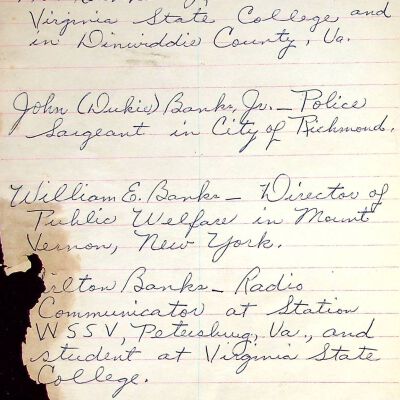 Virginia State College and
in Dinwiddie County, Va.
John (Dukie) Banks, Jr. — Police
Sargeant in City of Richmond.
William E. Banks — Director of
Public Welfare in Mount
Vernon, New York.
Banks — Radio
Communicator at Station
WSSV, Petersburg, Va., and
student at Virginia State
College.